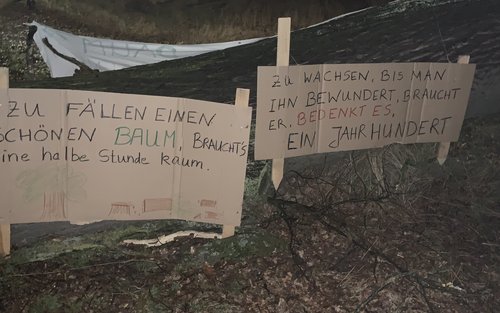 ZU FÄLLEN EINEN
SCHÖNEN BAUM, BRAUCHT'S
eine halbe Stunde kaum.
ZU WACHSEN, BIS MAN
IHN BEWUNDERT, BRAUCHT
ER, BEDENKT ES,
EIN JAHRHUNDERT